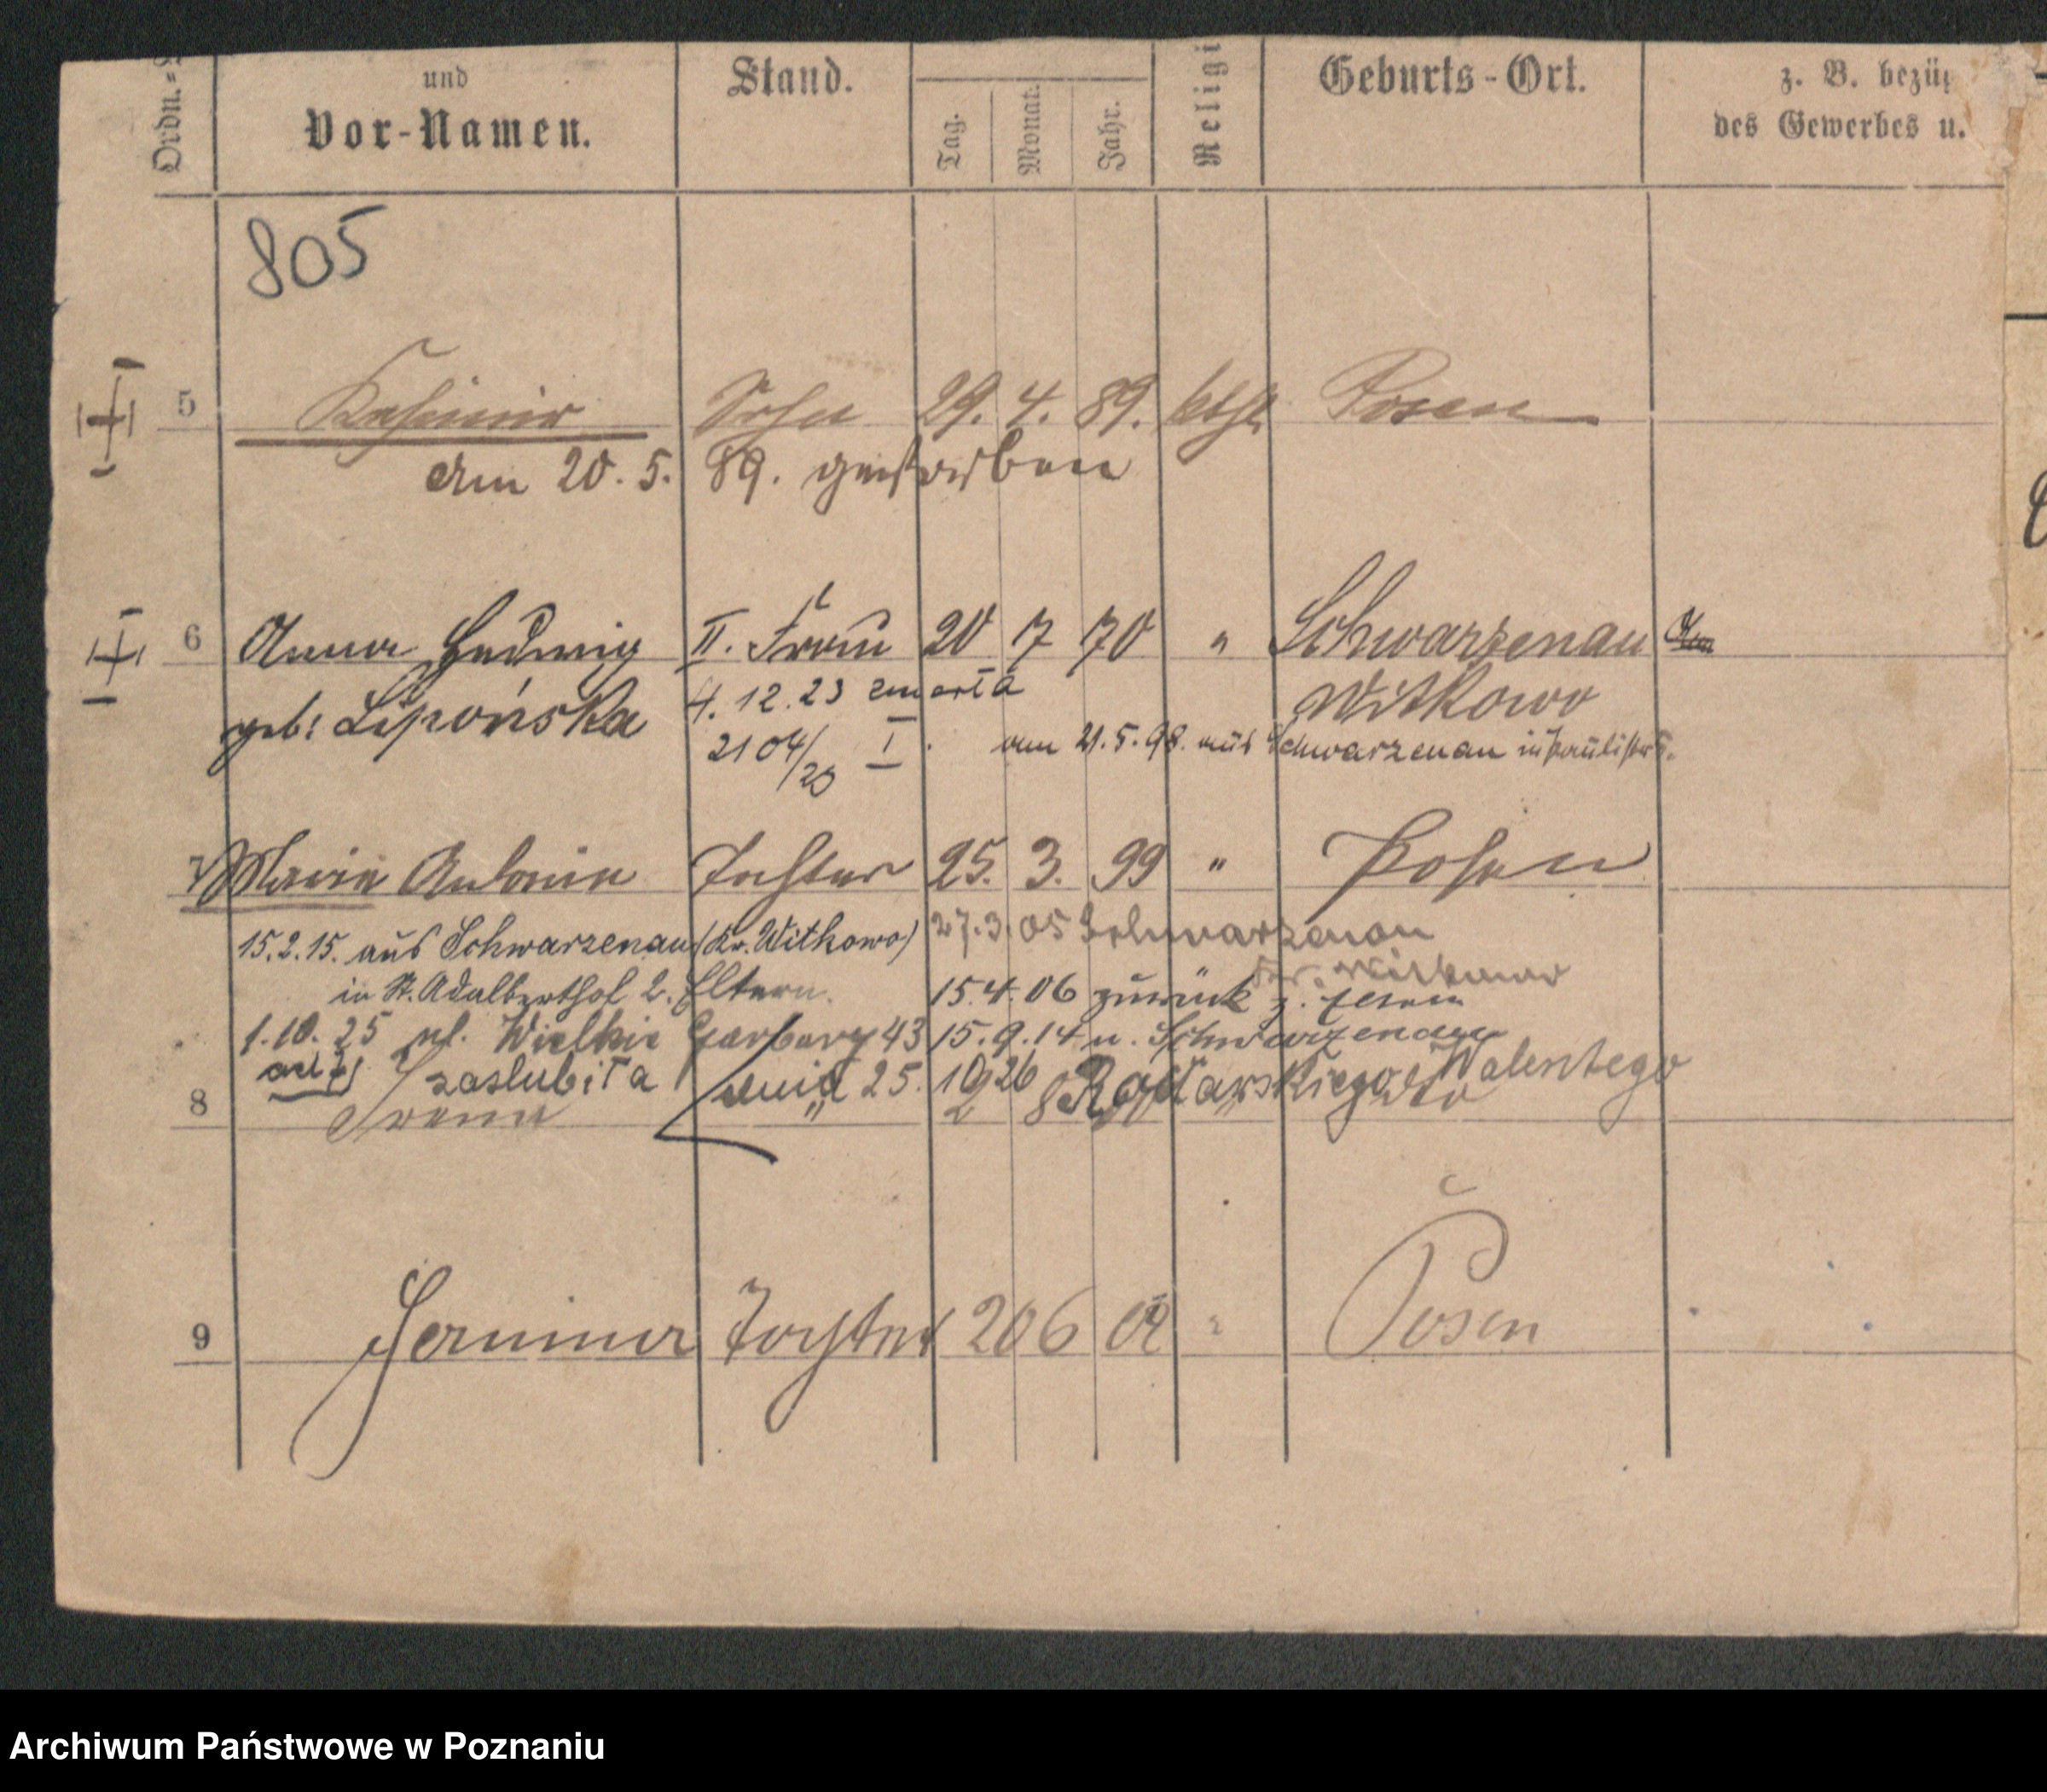 Ordn.=
und
Vor-Namen.
Stand.
Tag.
Monat.
Jahr.
Religi
Geburts-Ort.
z. B. bezüg
des Gewerbes u.
805
5 Kasimir Sohn 29. 4. 89. kth. Posen
am 20. 5. 89. gestorben
6 Anna Hedwig II. Frau 20 7 70 " Schwarzenau
geb: Lipońska 4. 12. 23 zmarła Witkowo
2104/23 I. am 21.5.98. aus Schwarzenau in Paulistr 5.
7 Maria Antonie Tochter 25. 3. 99 " Posen
15.2.15. aus Schwarzenau (Kr. Witkowo) 27.3.05 Schwarzenau
Kr. Witkowo
in St. Adalberthof 2. Eltern. 15.4.06 zurück z. Eltern
1.10.25 ul. Wielkie Garbary 43 15.9.14 n. Schwarzenau
ad 7) zaslubiła dnia 25. 10 26 Ratajskiego Walentego
8 Irena "
9 Germina Tochter 20 6 02 " Posen
Archiwum Państwowe w Poznaniu